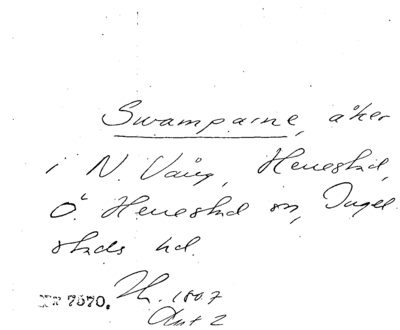 Swamparne, åker
i N. Vång, Henestad,
Ö. Henestad sn, Ingel-
stads hd.
Nr 7570. Th. 1807
Akt 2